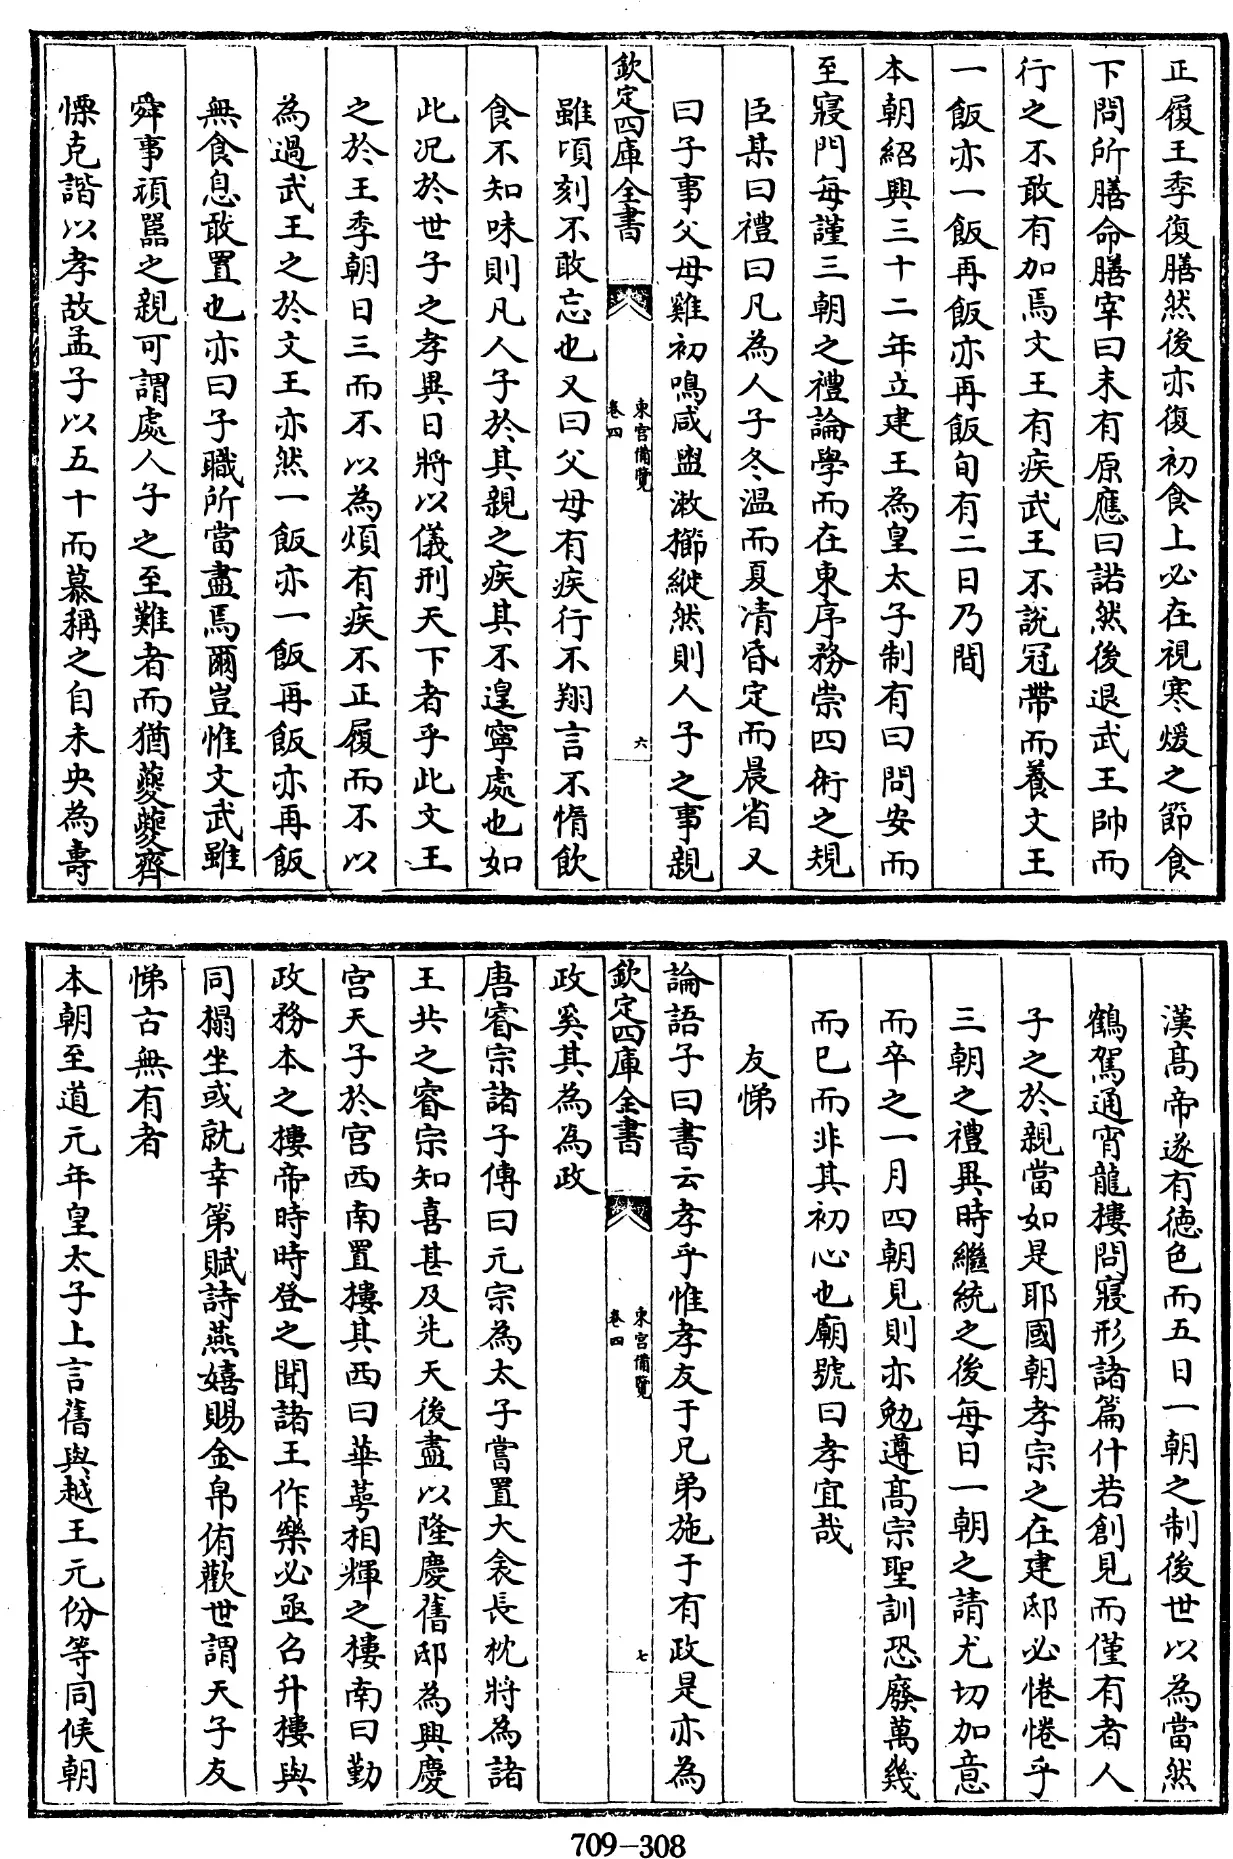 正履王季復膳然後亦復初食上必在視寒煖之節食
下問所膳命膳宰曰末有原應曰諾然後退武王帥而
行之不敢有加焉文王有疾武王不說冠帶而養文王
一飯亦一飯再飯亦再飯旬有二日乃間
本朝紹興三十二年立建王為皇太子制有曰問安而
至寢門每謹三朝之禮論學而在東序務崇四術之規
臣某曰禮曰凡為人子冬溫而夏凊昏定而晨省又
曰子事父母雞初鳴咸盥漱櫛縰然則人子之事親
欽定四庫全書
東宮備覽
卷四
六
雖頃刻不敢忘也又曰父母有疾行不翔言不惰飲
食不知味則凡人子於其親之疾其不遑寧處也如
此况於世子之孝異日將以儀刑天下者乎此文王
之於王季朝日三而不以為煩有疾不正履而不以
為過武王之於文王亦然一飯亦一飯再飯亦再飯
無食息敢置也亦曰子職所當盡焉爾豈惟文武雖
舜事頑嚚之親可謂處人子之至難者而猶夔夔齊
慄克諧以孝故孟子以五十而慕稱之自未央為壽
漢高帝遂有德色而五日一朝之制後世以為當然
鶴駕通宵龍樓問寢形諸篇什若創見而僅有者人
子之於親當如是耶國朝孝宗之在建邸必惓惓乎
三朝之禮異時繼統之後每日一朝之請尤切加意
而卒之一月四朝見則亦勉遵高宗聖訓恐廢萬幾
而已而非其初心也廟號曰孝宜哉
友悌
論語子曰書云孝乎惟孝友于兄弟施于有政是亦為
欽定四庫全書
東宮備覽
卷四
七
政奚其為為政
唐睿宗諸子傳曰元宗為太子嘗置大衾長枕將為諸
王共之睿宗知喜甚及先天後盡以隆慶舊邸為興慶
宮天子於宮西南置樓其西曰華萼相輝之樓南曰勤
政務本之樓帝時時登之聞諸王作樂必亟召升樓與
同榻坐或就幸第賦詩燕嬉賜金帛侑歡世謂天子友
悌古無有者
本朝至道元年皇太子上言舊與越王元份等同候朝
709-308